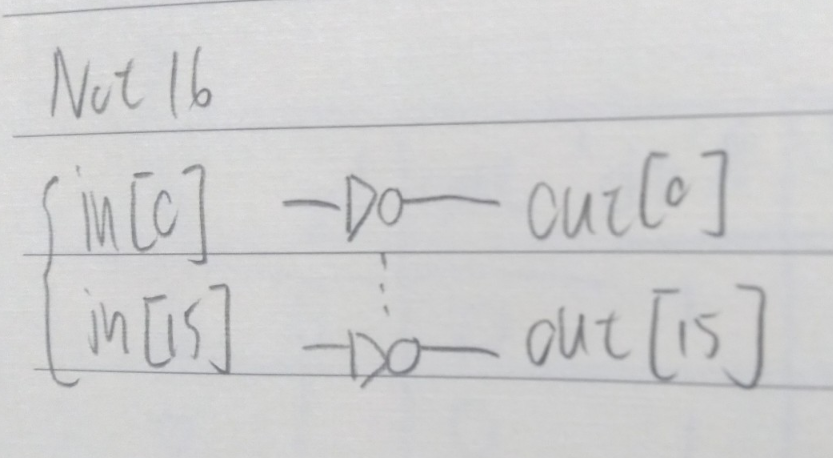 Not 16
in[0] out[0]
in[15] out[15]